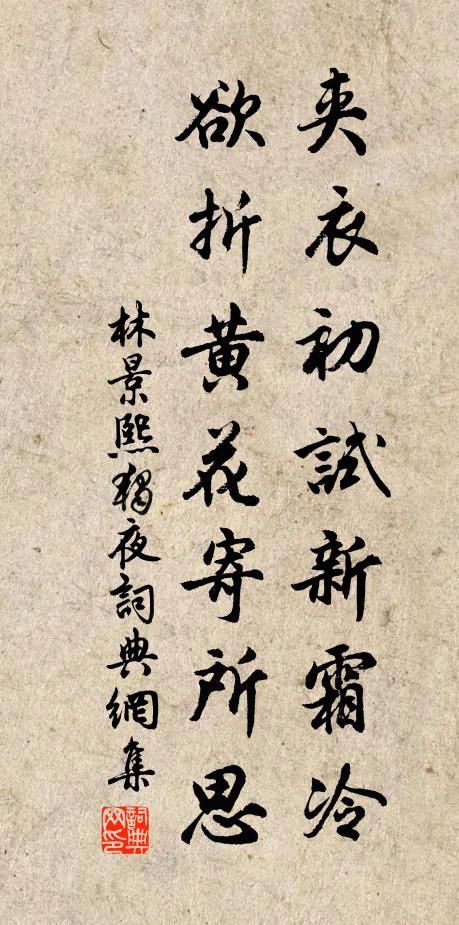 夹衣初試新霜冷
欲折黄花寄所思
林景熙獨夜詞典網集
詞典网印